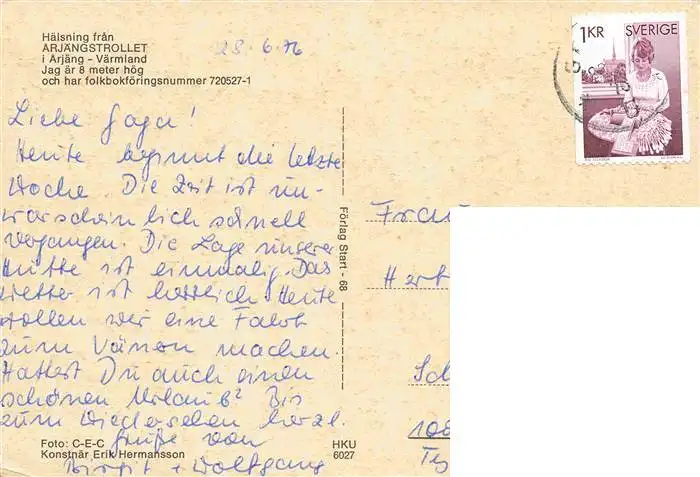 Hälsning från
ÅRJÄNGSTROLLET
i Årjäng – Värmland
Jag är 8 meter hög
och har folkbokföringsnummer 720527-1
28.6.76
1 KR SVERIGE
Liebe Gaga!
Heute beginnt die letzte
Woche. Die Zeit ist un-
warscheinlich schnell
vergangen. Die Lage unserer
Hütte ist einmalig. Das
Wetter ist herrlich. Heute
wollen wir eine Fahrt
zum Vänen machen.
Hattest Du auch einen
schönen Urlaub? Bis
zum Wiedersehen herzl.
Grüße von
Birgit + Wolfgang
Foto: C-E-C
Konstnär Erik Hermansson
HKU
6027
Förlag Start - 68
Frau
Hert
Sch
108